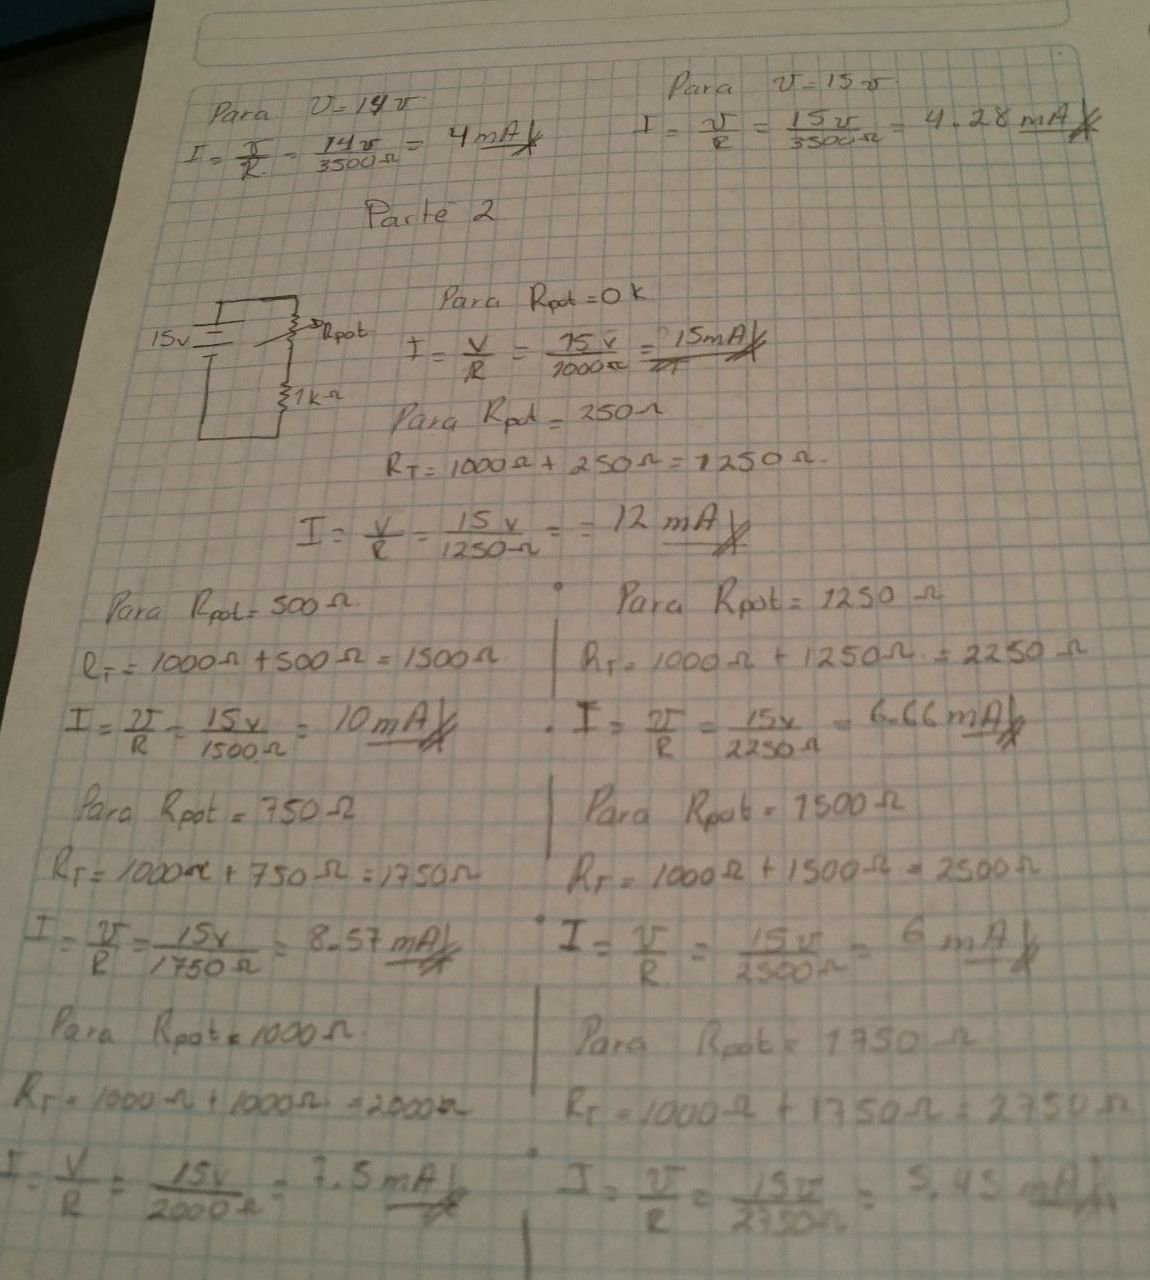 Para V=14v
I = V/R = 14v/3500Ω = 4mA
Para V=15v
I = V/R = 15v/3500Ω = 4.28 mA
Parte 2
15v
Rpot
1kΩ
Para Rpot=0k
I = V/R = 15v/1000Ω = 15mA
Para Rpot = 250Ω
RT = 1000Ω + 250Ω = 1250Ω.
I = V/R = 15v/1250Ω = = 12 mA
Para Rpot = 500Ω.
RT = 1000Ω + 500Ω = 1500Ω.
I = V/R = 15v/1500Ω = 10mA
Para Rpot = 750Ω
RT = 1000Ω + 750Ω = 1750Ω
I = V/R = 15v/1750Ω = 8.57 mA
Para Rpot = 1000Ω
RT = 1000Ω + 1000Ω = 2000Ω
I = V/R = 15v/2000Ω = 7.5mA
Para Rpot = 1250Ω
RT = 1000Ω + 1250Ω = 2250Ω
I = V/R = 15v/2250Ω = 6.66mA
Para Rpot = 1500Ω
RT = 1000Ω + 1500Ω = 2500Ω
I = V/R = 15v/2500Ω = 6 mA
Para Rpot = 1750Ω
RT = 1000Ω + 1750Ω = 2750Ω
I = V/R = 15v/2750Ω = 5.45 mA